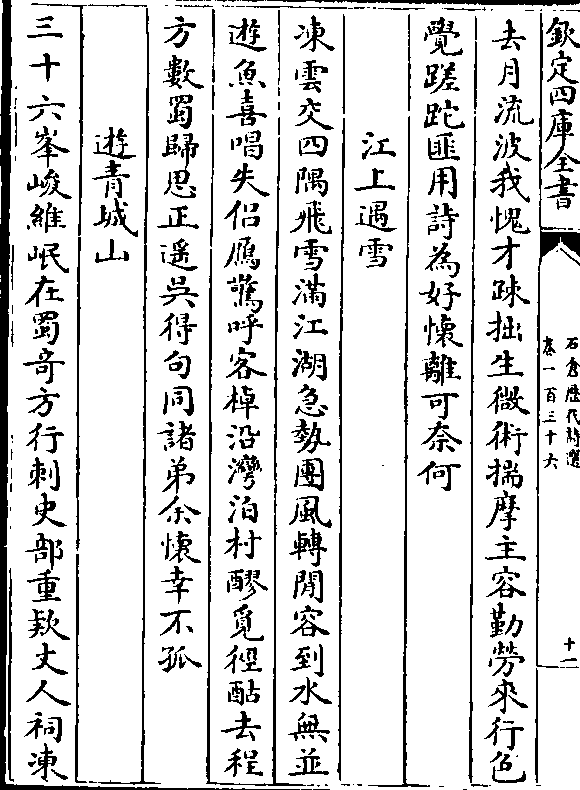 欽定四庫全書
石倉歷代詩選
卷一百三十六
十一
去月流波我愧才疎拙生微術揣摩主容勤勞來行色
覺蹉跎匪用詩為好懷離可奈何
江上遇雪
凍雲交四隅飛雪滿江湖急勢團風轉閒容到水無並
遊魚喜唱失侣鴈驚呼客棹沿灣泊村醪覓徑酤去程
方數蜀歸思正遥吳得句同諸弟余懷幸不孤
遊青城山
三十六峯峻維岷在蜀奇方行刺史部重欵丈人祠凍